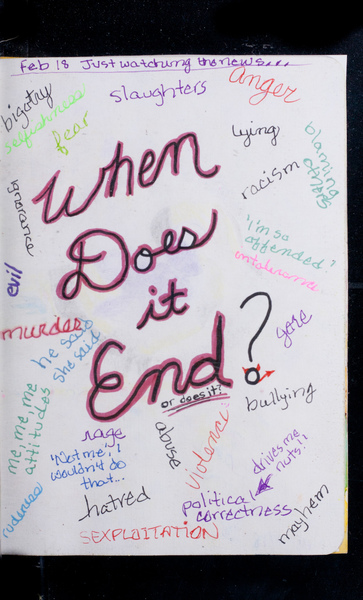 Feb 18 Just watching the news....
slaughters
anger
bigotry
selfishness
fear
lying
blaming
others
racism
ignorance
When
Does
it
End?
or does it?
'I'm so
offended.'
intolerance
evil
murder
he said
she said
gore
me, me, me
attitudes
bullying
rage
abuse
violence
'Not me, I
wouldn't do
that...
drives me
nuts!!
rudeness
hatred
political
correctness
mayhem
SEXPLOITATION